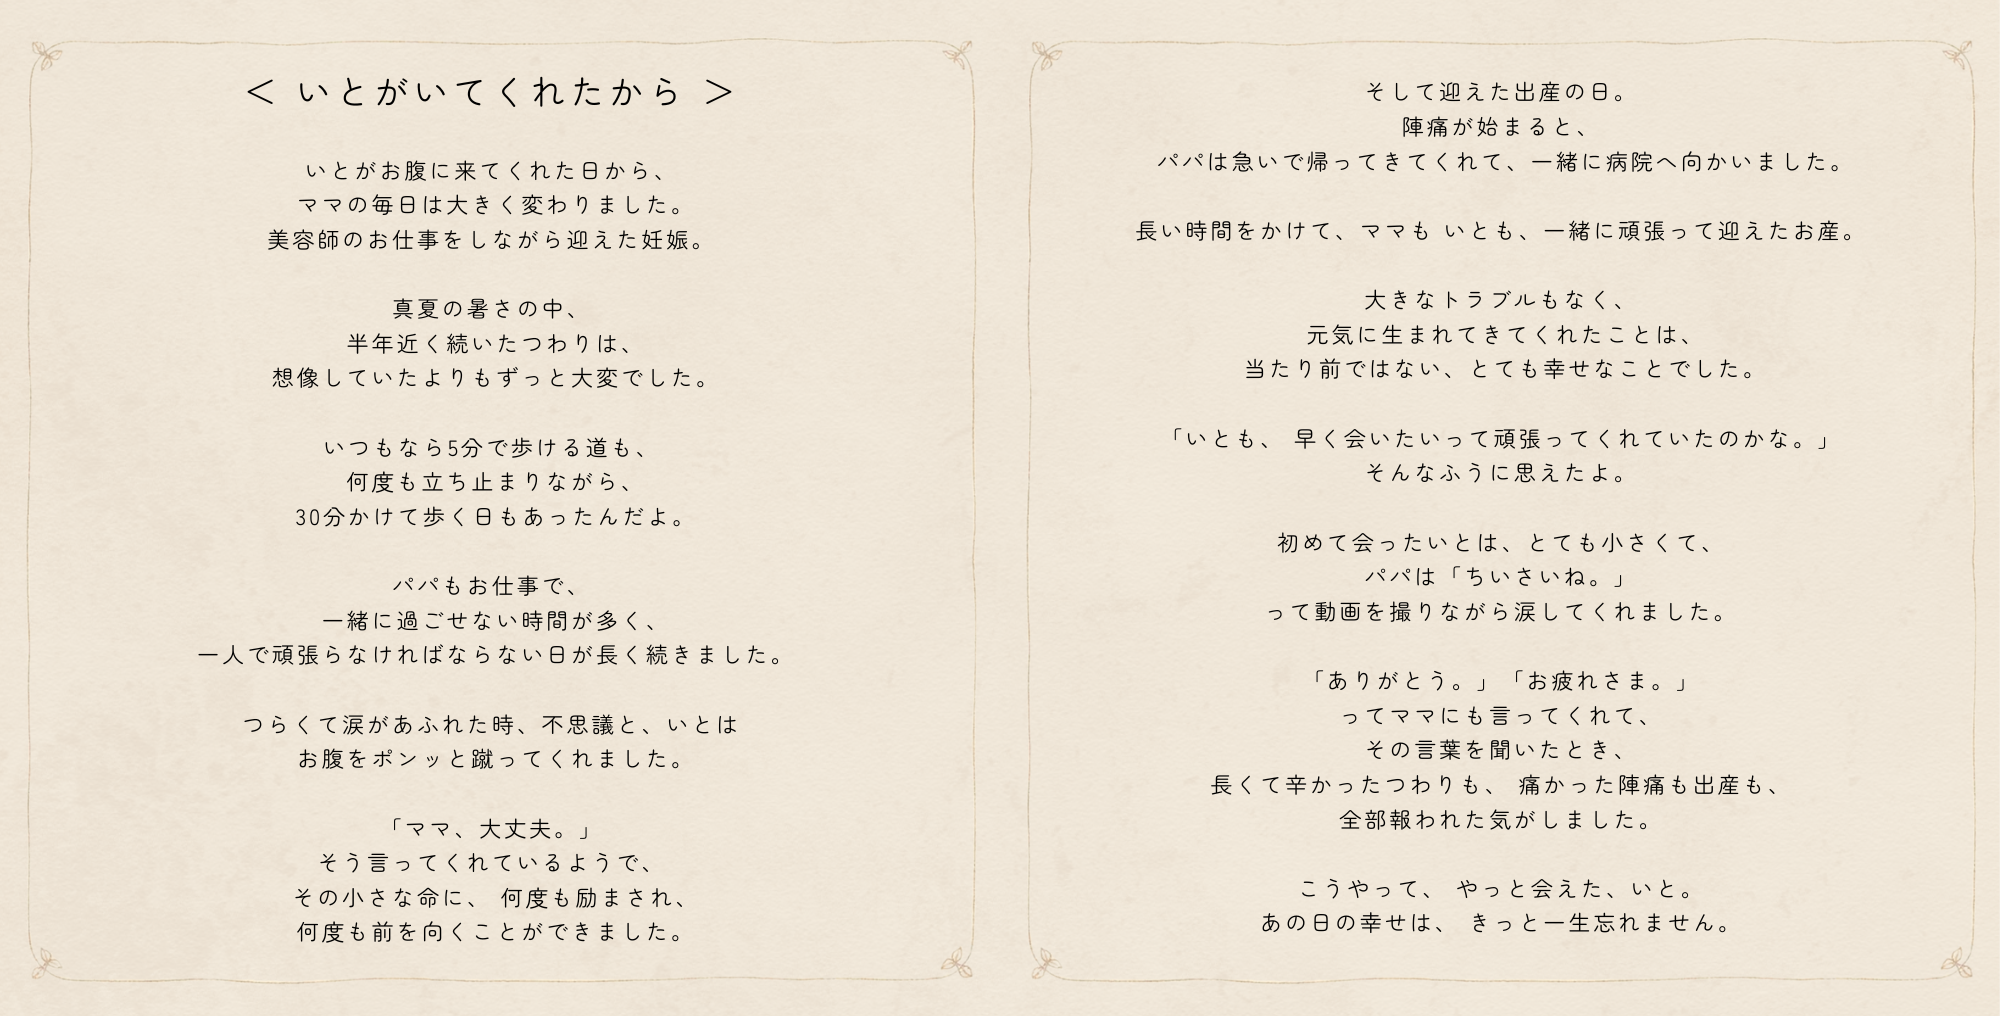 ＜ いとがいてくれたから ＞
いとがお腹に来てくれた日から、
ママの毎日は大きく変わりました。
美容師のお仕事をしながら迎えた妊娠。
真夏の暑さの中、
半年近く続いたつわりは、
想像していたよりもずっと大変でした。
いつもなら5分で歩ける道も、
何度も立ち止まりながら、
30分かけて歩く日もあったんだよ。
パパもお仕事で、
一緒に過ごせない時間が多く、
一人で頑張らなければならない日が長く続きました。
つらくて涙があふれた時、不思議と、いとは
お腹をポンッと蹴ってくれました。
「ママ、大丈夫。」
そう言ってくれているようで、
その小さな命に、 何度も励まされ、
何度も前を向くことができました。
そして迎えた出産の日。
陣痛が始まると、
パパは急いで帰ってきてくれて、一緒に病院へ向かいました。
長い時間をかけて、ママも いとも、一緒に頑張って迎えたお産。
大きなトラブルもなく、
元気に生まれてきてくれたことは、
当たり前ではない、とても幸せなことでした。
「いとも、 早く会いたいって頑張ってくれていたのかな。」
そんなふうに思えたよ。
初めて会ったいとは、とても小さくて、
パパは「ちいさいね。」
って動画を撮りながら涙してくれました。
「ありがとう。」「お疲れさま。」
ってママにも言ってくれて、
その言葉を聞いたとき、
長くて辛かったつわりも、 痛かった陣痛も出産も、
全部報われた気がしました。
こうやって、 やっと会えた、いと。
あの日の幸せは、 きっと一生忘れません。